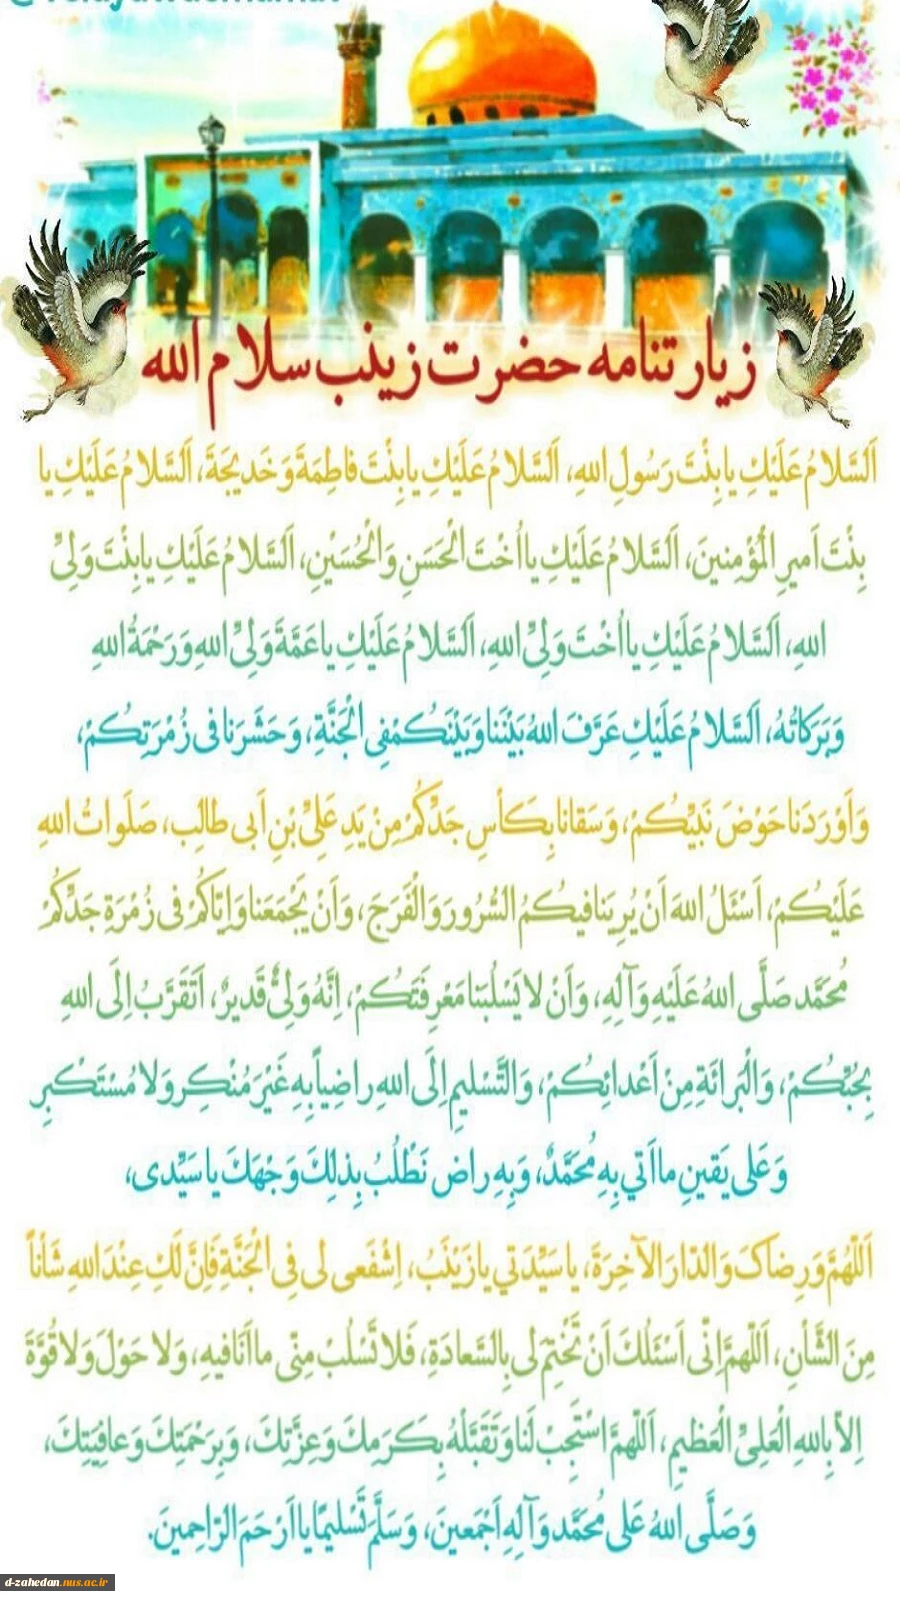 زیارتنامه حضرت زینب سلام الله
اَلسَّلامُ عَلَیْكِ یا بِنْتَ رَسُولِ اللهِ، اَلسَّلامُ عَلَیْكِ یا بِنْتَ فاطِمَةَ وَ خَدیجَةَ، اَلسَّلامُ عَلَیْكِ یا
بِنْتَ اَمیرِ الْمُؤْمِنینَ، اَلسَّلامُ عَلَیْكِ یا اُخْتَ الْحَسَنِ وَ الْحُسَیْنِ، اَلسَّلامُ عَلَیْكِ یا بِنْتَ وَلِیِّ
اللهِ، اَلسَّلامُ عَلَیْكِ یا اُخْتَ وَلِیِّ اللهِ، اَلسَّلامُ عَلَیْكِ یا عَمَّةَ وَلِیِّ اللهِ وَ رَحْمَةُ اللهِ
وَ بَرَكاتُهُ، اَلسَّلامُ عَلَیْكِ عَرَّفَ اللهُ بَیْنَنا وَ بَیْنَكُمْ فِی الْجَنَّةِ، وَ حَشَرَنا فی زُمْرَتِكُمْ،
وَ اَوْرَدَنا حَوْضَ نَبِیِّكُمْ، وَ سَقانا بِكَأسِ جَدِّكُمْ مِنْ یَدِ عَلِیِّ بْنِ اَبی طالِب، صَلَواتُ اللهِ
عَلَیْكُمْ، اَسْئَلُ اللهَ اَنْ یُرِیَنا فیكُمُ السُّرُورَ وَ الْفَرَجَ، وَ اَنْ یَجْمَعَنا وَ اِیّاكُمْ فی زُمْرَةِ جَدِّكُمْ
مُحَمَّد صَلَّی اللهُ عَلَیْهِ وَ آلِهِ، وَ اَنْ لا یَسْلُبَنا مَعْرِفَتَكُمْ، اِنَّهُ وَلِیٌّ قَدیرٌ، اَتَقَرَّبُ اِلَی اللهِ
بِحُبِّكُمْ، وَ الْبَرائَةِ مِنْ اَعْدائِكُمْ، وَ التَّسْلیمِ اِلَی اللهِ راضِیاً بِهِ غَیْرَ مُنْكِر وَ لا مُسْتَكْبِر
وَ عَلی یَقینِ ما اَتی بِهِ مُحَمَّدٌ، وَ بِهِ راض نَطْلُبُ بِذلِكَ وَجْهَكَ یا سَیِّدی،
اَللّهُمَّ وَ رِضاكَ وَ الدّارَ الآخِرَةَ، یا سَیِّدَتی یا زَیْنَبُ، اِشْفَعی لی فِی الْجَنَّةِ فَاِنَّ لَكِ عِنْدَ اللهِ شَأْناً
مِنَ الشَّأْنِ، اَللّهمَّ اِنّی اَسْئَلُكَ اَنْ تَخْتِمَ لی بِالسَّعادَةِ، فَلا تَسْلُبْ مِنّی ما اَنَا فیهِ، وَ لا حَوْلَ وَ لا قُوَّةَ
اِلاّ بِاللهِ الْعَلِیِّ الْعَظیمِ، اَللّهمَّ اسْتَجِبْ لَنا وَ تَقَبَّلْهُ بِكَرَمِكَ وَ عِزَّتِكَ، وَ بِرَحْمَتِكَ وَ عافِیَتِكَ،
وَ صَلَّی اللهُ عَلی مُحَمَّد وَ آلِهِ اَجْمَعینَ، وَ سَلَّمَ تَسْلیمًا یا اَرْحَمَ الرّاحِمینَ.
d-zahedan.nus.ac.ir